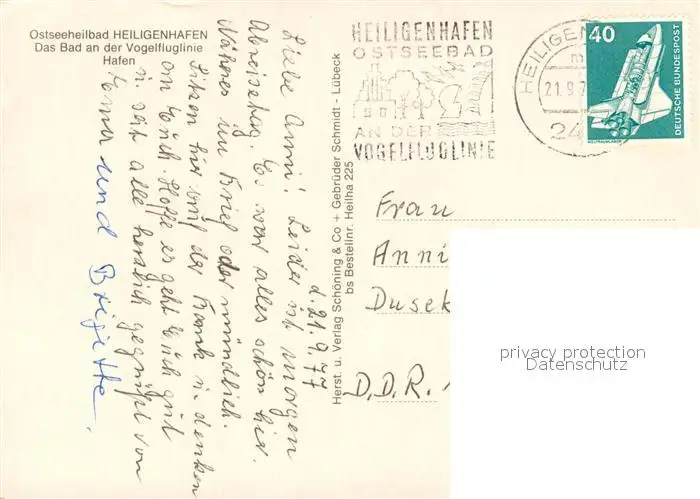 Ostseeheilbad HEILIGENHAFEN
Das Bad an der Vogelfluglinie
Hafen
d. 21.9.77
Liebe Anni! Leider ist morgen
Abreisetag. Es war alles schön hier.
Näheres im Brief oder mündlich.
Sitzen hier auf der Bank u. denken
an Euch. Hoffe es geht Euch gut
u. seit alle herzlich gegrüßt von
Erna und Brigitte.
Herst. u. Verlag Schöning & Co + Gebrüder Schmidt - Lübeck
bs Bestellnr. Heilha 225
HEILIGENHAFEN
OSTSEEBAD
AN DER
VOGELFLUGLINIE
HEILIGEN
m
21.9.7
24
40
DEUTSCHE BUNDESPOST
WELTRAUMLABOR
Frau
Anni
Dusek
D.D.R.
privacy protection
Datenschutz